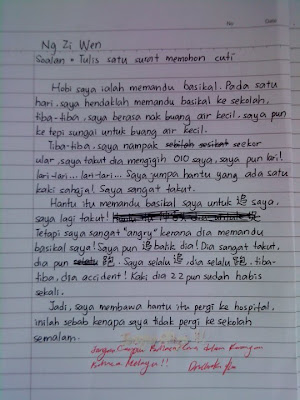 No. Date
Ng Zi Wen
Soalan • Tulis satu surat memohon cuti
Hobi saya ialah memandu basikal. Pada satu
hari, saya hendaklah memandu basikal ke sekolah,
tiba-tiba, saya berasa nak buang air kecil, saya pun
ke tepi sungai untuk buang air kecil.
Tiba-tiba, saya nampak seekor
ular, saya takut dia mengigih 010 saya, saya pun lari!
lari-lari... lari-lari... Saya jumpa hantu yang ada satu
kaki sahaja! Saya sangat takut.
Hantu itu memandu basikal saya untuk 追 saya,
saya lagi takut!
Tetapi saya sangat "angry" kerana dia memandu
basikal saya! Saya pun 追 balik dia! Dia sangat takut,
dia pun 跑. Saya selalu 追, dia selalu 跑, tiba-
tiba, dia accident! Kaki dia 22 pun sudah habis
sekali.
Jadi, saya membawa hantu itu pergi ke hospital,
inilah sebab kenapa saya tidak pergi ke sekolah
semalam.
jangan campur Bahasa Cina dalam karangan
Bahasa Melayu!!